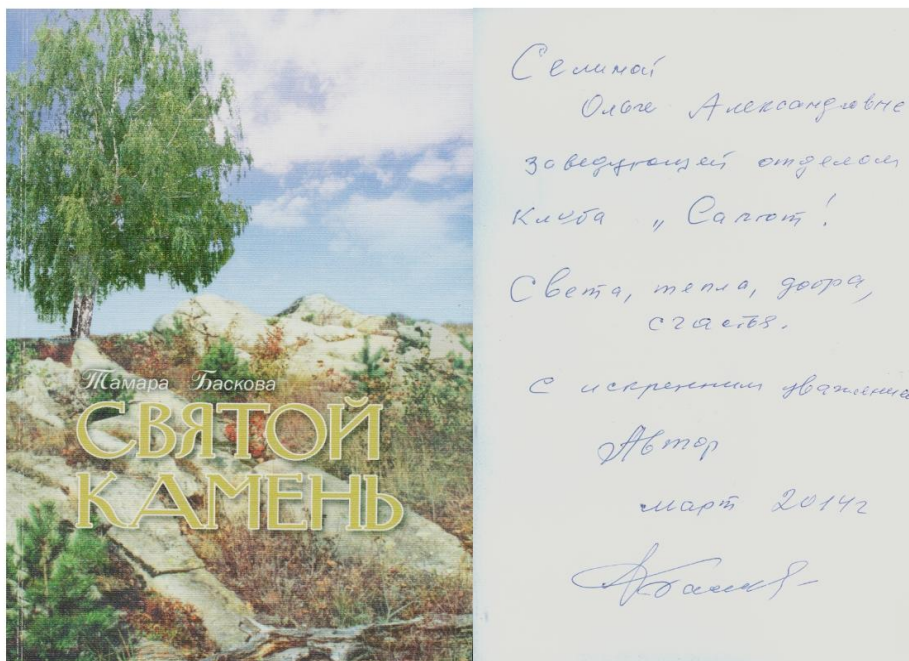 Тамара Баскова
СВЯТОЙ
КАМЕНЬ
Селиной
Ольге Александровне
заведующей отделом
клуба „Салют!
Света, тепла, добра,
счастья.
С искренним уважение
Автор
март 2014г